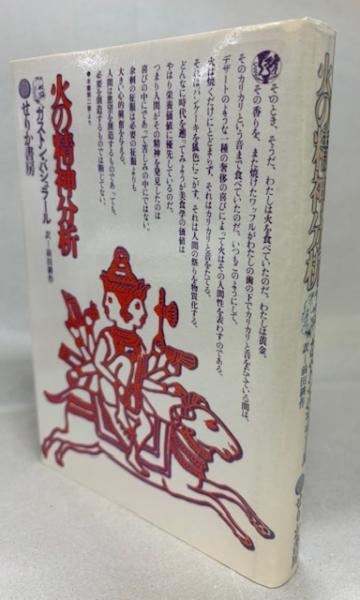 そのとき、そうだ、わたしは火を食べていたのだ。わたしは黄金、
その香りを、また焼けたワッフルがわたしの歯の下でカリカリと音をたてている間は、
そのカリカリという音まで食べていたのだ。いつもこのようにして、
デザートのような一種の奢侈の喜びによって火はその人間性を表わすのである。
火は焼くだけにとどまらず、それはカリカリと音をたてる。
それはパンケーキを狐色にこがす。それは人間の祭りを物質化する。
どんなに時代を遡ってみようが美食学の価値は
やはり栄養価値に優先しているのだ。
つまり人間がその精神を発見したのは
喜びの中にであって苦しみの中にではない。
余剰の征服は必要の征服よりも
大きい心的興奮を与える。
人間は欲望を創造するものであっても、
必要を創造するものでは断じてない。
●本書第二章より
火の精神分析
ガストン・バシュラール
訳=前田耕作
せりか書房
火の精神分析
訳=前田耕作
せりか書房